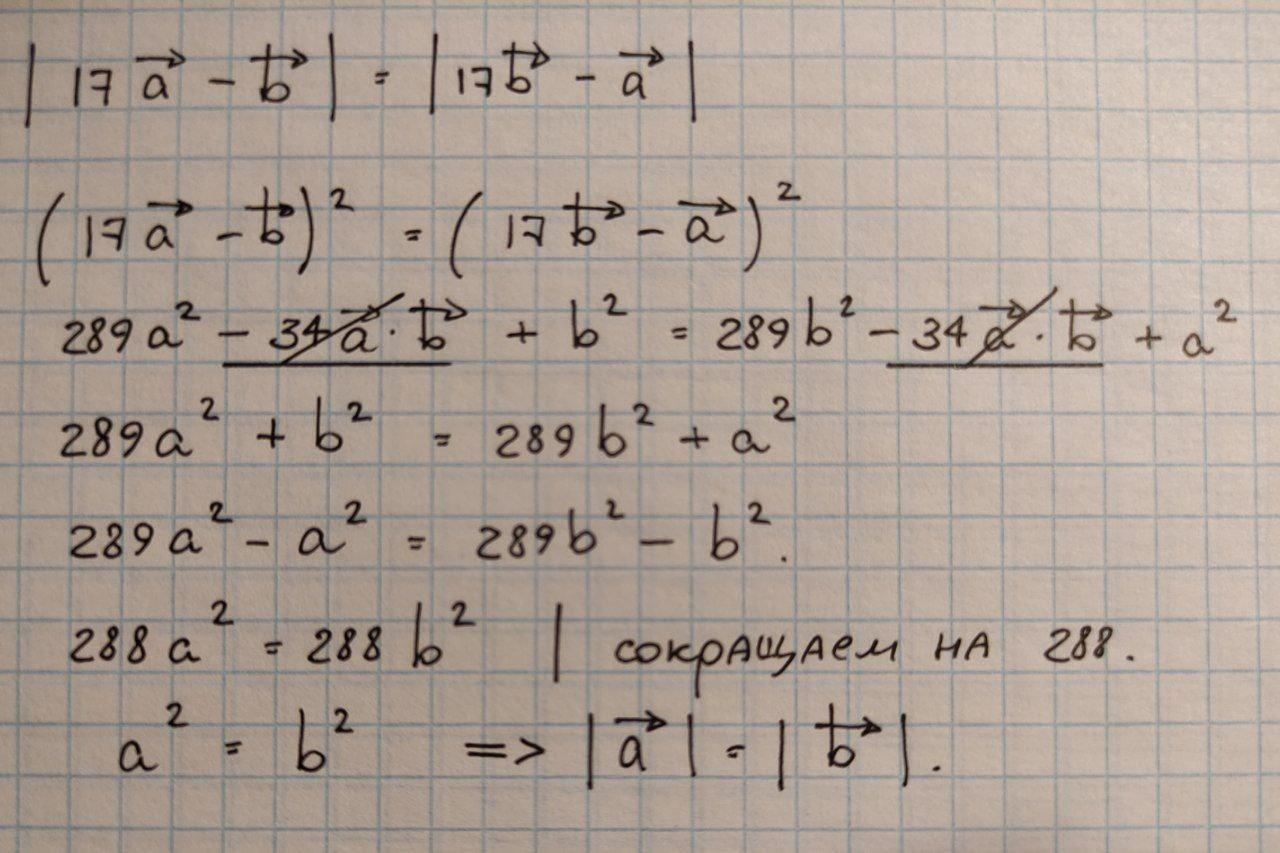 | 17a⃗ - b⃗ | = | 17b⃗ - a⃗ |
(17a⃗ - b⃗)² = (17b⃗ - a⃗)²
289a² - 34a⃗·b⃗ + b² = 289b² - 34a⃗·b⃗ + a²
289a² + b² = 289b² + a²
289a² - a² = 289b² - b².
288a² = 288b² | сокращаем на 288.
a² = b² => |a⃗| = |b⃗|.